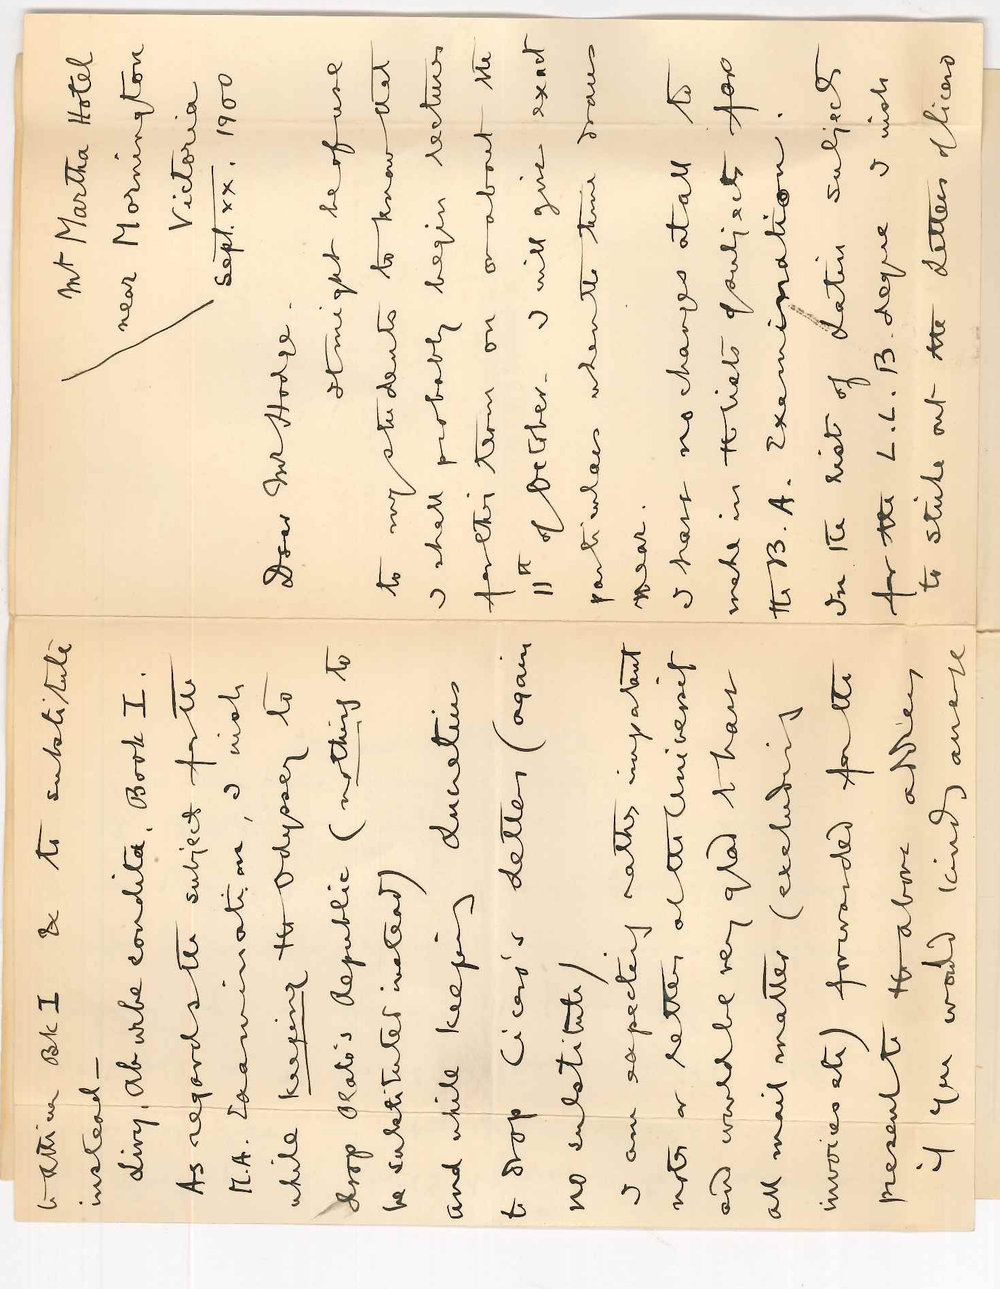 Mt Martha Hotel
near Mornington
Victoria
Sept. xx. 1900
Dear Mr Hodge.
It might be of use
to my students to know that
I shall probably begin lectures
for this term on or about the
11th of October. I will give exact
particulars when the time draws
near.
I have no changes at all to
make in the lists of subjects for
the B.A. Examination.
In the list of Latin subjects
for the L.L.B. degree I wish
to strike out the Letters of Cicero
to Atticus Bk I & to substitute
instead –
Livy, Ab urbe condita. Book I.
As regards the subject for the
M.A. Examination, I wish
while keeping the Odyssey to
drop Plato's Republic (nothing to
be substituted instead)
and while keeping Lucretius
to drop Cicero's Letters (again
no substitute)
I am expecting rather important
notes or letters at the University
and would be very glad to have
all mail matter (excluding
invoices etc) forwarded for the
present to the above address
if you would kindly arrange